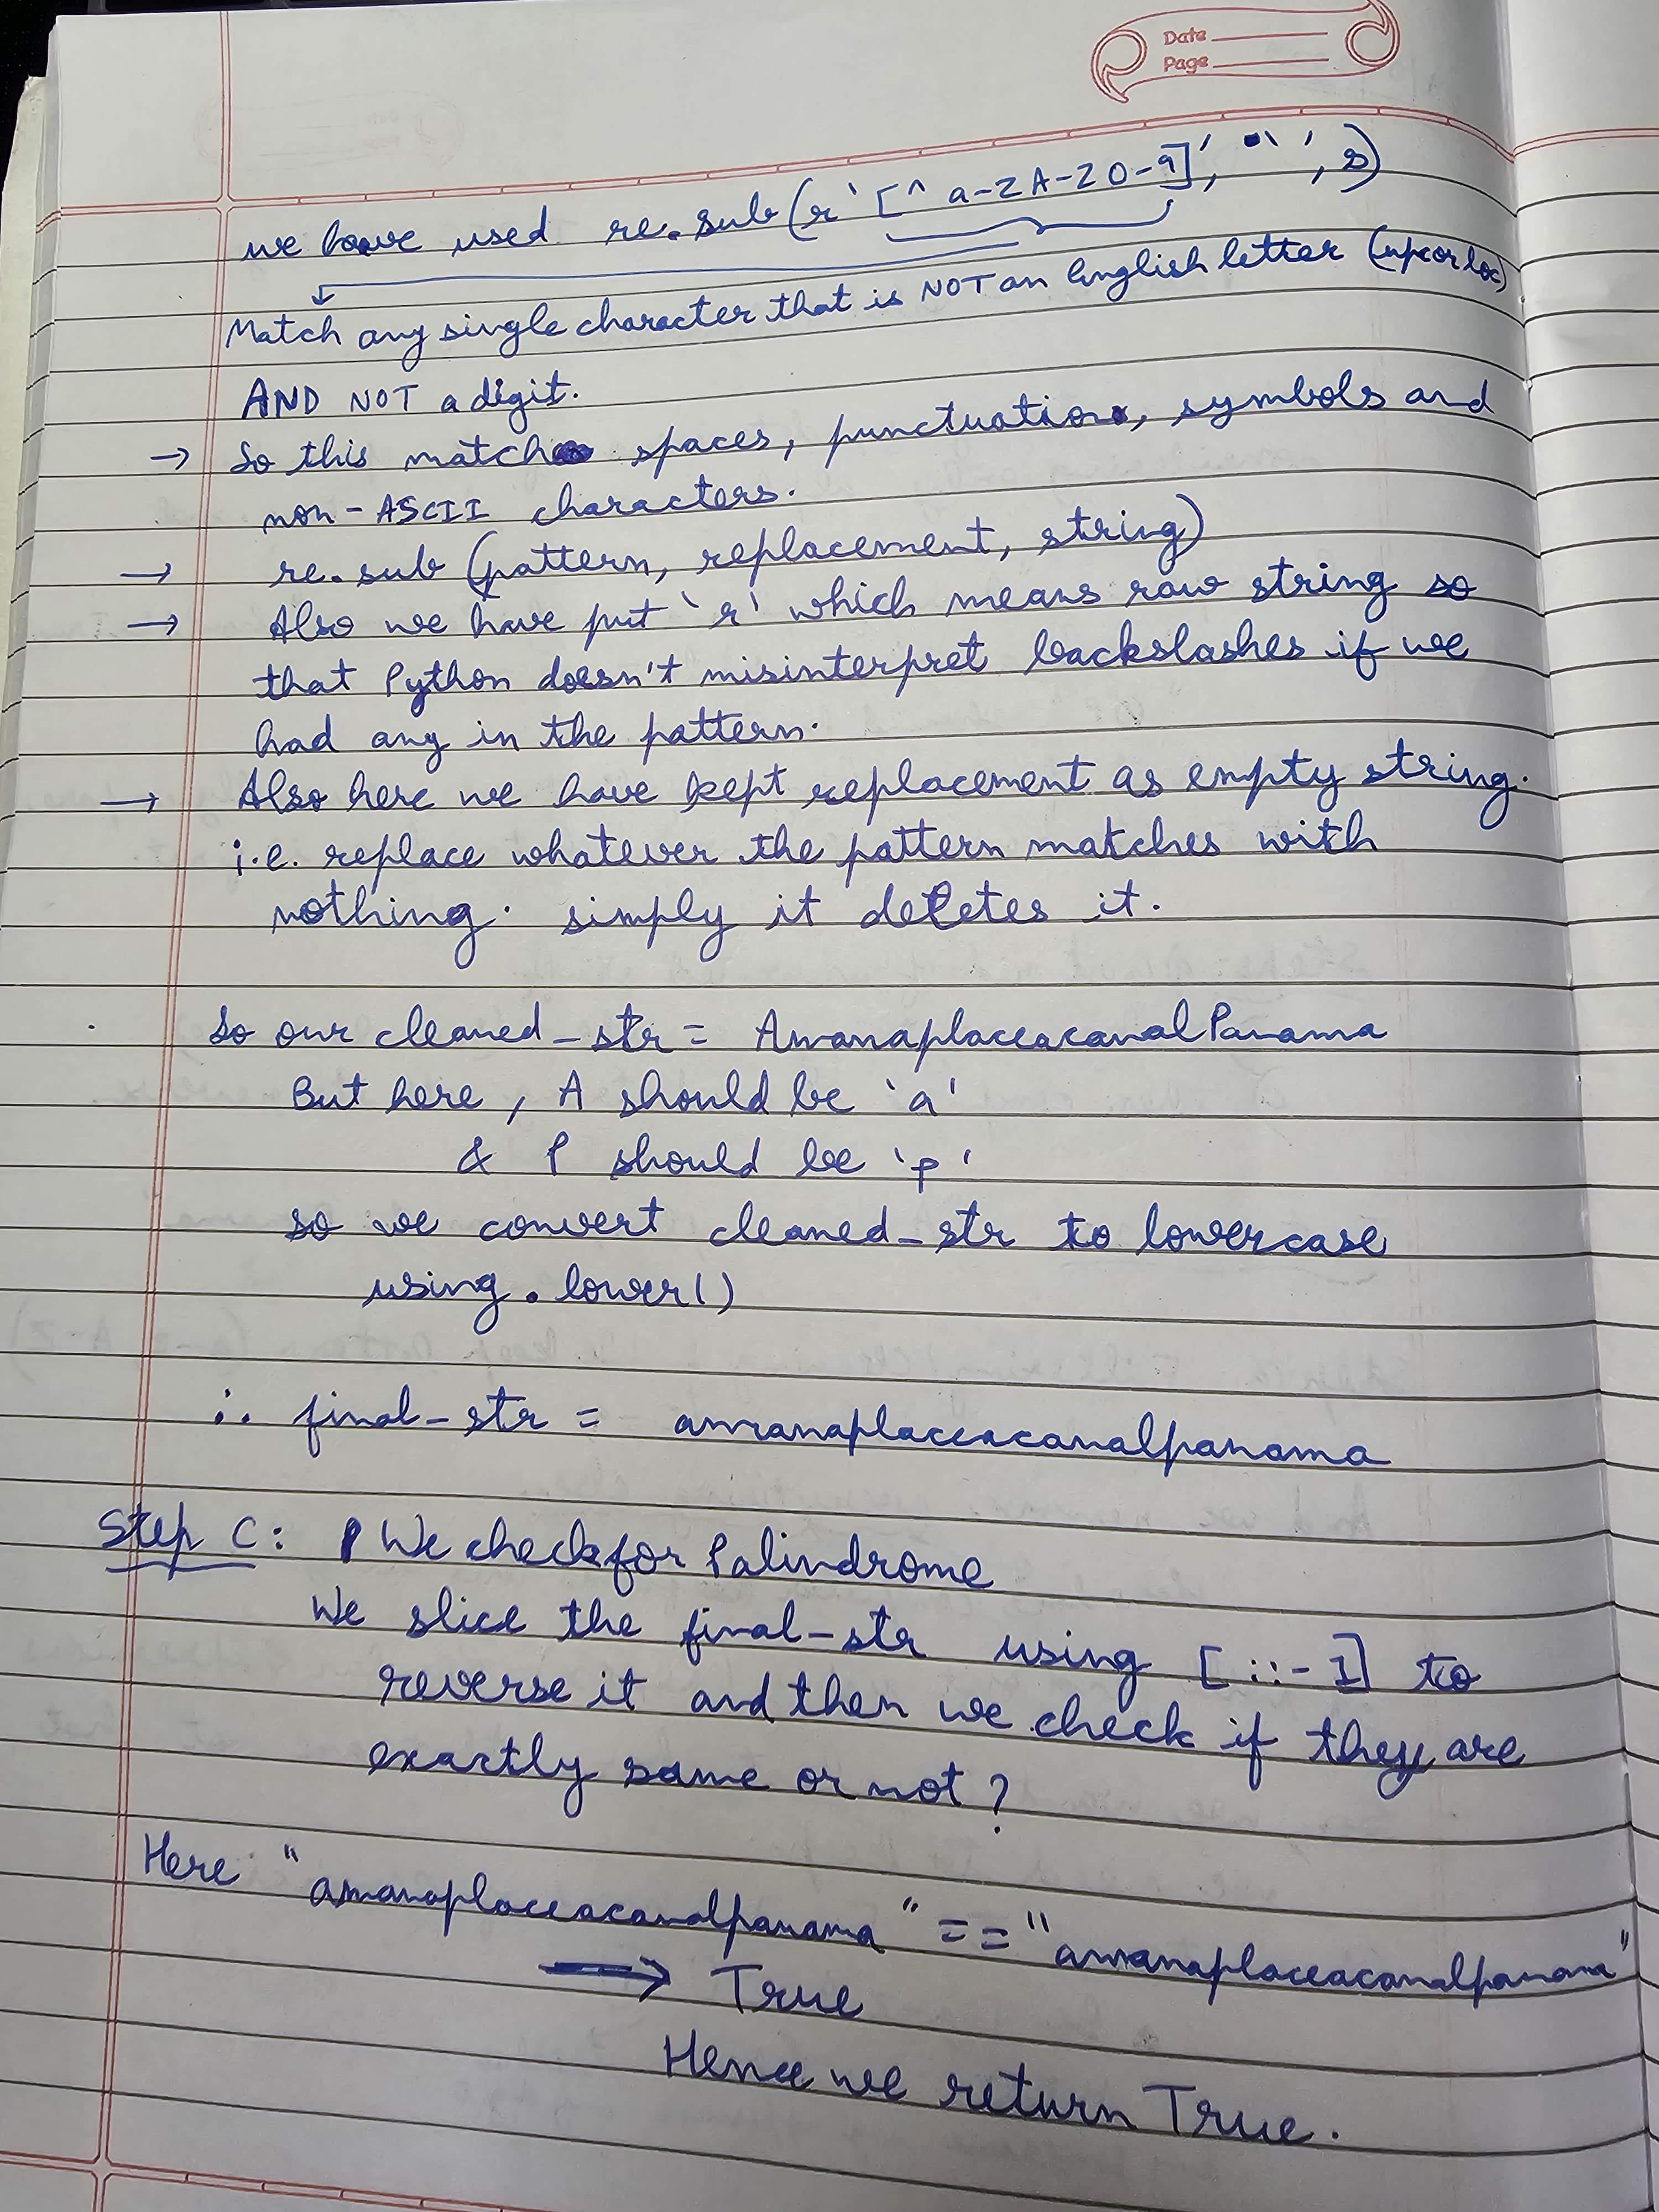 Date
Page
we have used re.sub(r'[^ a-zA-Z0-9]', '', s)
Match any single character that is NOT an English letter (upc or loc)
AND NOT a digit.
→ So this match spaces, punctuation, symbols and
non-ASCII characters.
→ re.sub (pattern, replacement, string)
→ Also we have put 'r' which means raw string so
that Python doesn't misinterpret backslashes if we
had any in the pattern.
→ Also here we have kept replacement as empty string.
i.e. replace whatever the pattern matches with
nothing. simply it deletes it.
So our cleaned_str = AmanaplaceacanalPanama
But here, A should be 'a'
& P should be 'p'
so we convert cleaned_str to lowercase
using .lower()
∴ final_str = amanaplaceacanalpanama
Step C: We check for Palindrome
We slice the final_str using [::-1] to
reverse it and then we check if they are
exactly same or not?
Here "amanaplaceacanalpanama" == "amanaplaceacanalpanama"
→ True
Hence we return True.